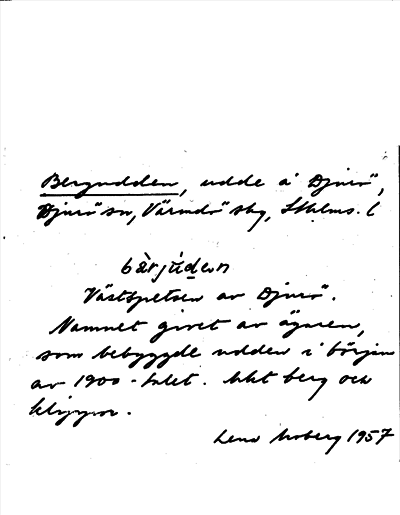 Bergudden, udde å Djurö,
Djurö sn, Värmdö skg, Sthlms. l
bàrjúden
Västspetsen av Djurö.
Namnet givet av ägaren,
som bebyggde udden i början
av 1900-talet. Mkt berg och
klippor.
Lena Moberg 1957